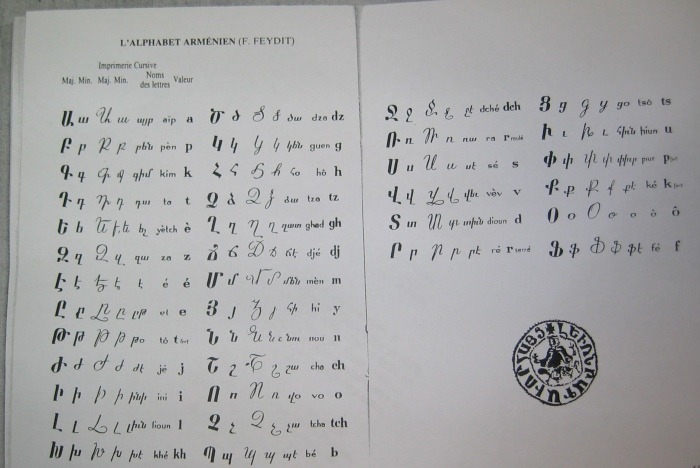 L'ALPHABET ARMÉNIEN (F. FEYDIT)
Imprimerie Cursive
Maj. Min. Maj. Min. Noms des lettres Valeur
Ա ա Ա ա այբ aip a
Բ բ Բ բ բեն pèn p
Գ գ Գ գ գիմ kim k
Դ դ Դ դ դա ta t
Ե ե Ե ե եչ yètch è
Զ զ Զ զ զա za z
Է է Է է է é é
Ը ը Ը ը ըթ et e
Թ թ Թ թ թօ tó t
Ժ ժ Ժ ժ ժէ jé j
Ի ի Ի ի ինի ini i
Լ լ Լ լ լիւն lioun l
Խ խ Խ խ խէ khé kh
Ծ ծ Ծ ծ ծա dza dz
Կ կ Կ կ կեն guen g
Հ հ Հ հ հօ hô h
Ձ ձ Ձ ձ ձա tza tz
Ղ ղ Ղ ղ ղատ ghad gh
Ճ ճ Ճ ճ ճէ djé dj
Մ մ Մ մ մեն mèn m
Յ յ Յ յ յի hi y
Ն ն Ն ն նու nou n
Շ շ Շ շ շա cha ch
Ո ո Ո ո վօ vo o
Չ չ Չ չ չա tcha tch
Պ պ Պ պ պէ bé b
Ջ ջ Ջ ջ ջէ dché dch
Ռ ռ Ռ ռ ռա ra r rude
Ս ս Ս ս սէ sé s
Վ վ Վ վ վեւ vèv v
Տ տ Տ տ տիւն dioun d
Ր ր Ր ր րէ ré r
Ց ց Ց ց ցօ tsò ts
Ւ ւ Ւ ւ հիւն hiun u
Փ փ Փ փ փիւր pur p
Ք ք Ք ք քէ ké k
Օ օ Օ օ օ ò ô
Ֆ ֆ Ֆ ֆ ֆէ fé f